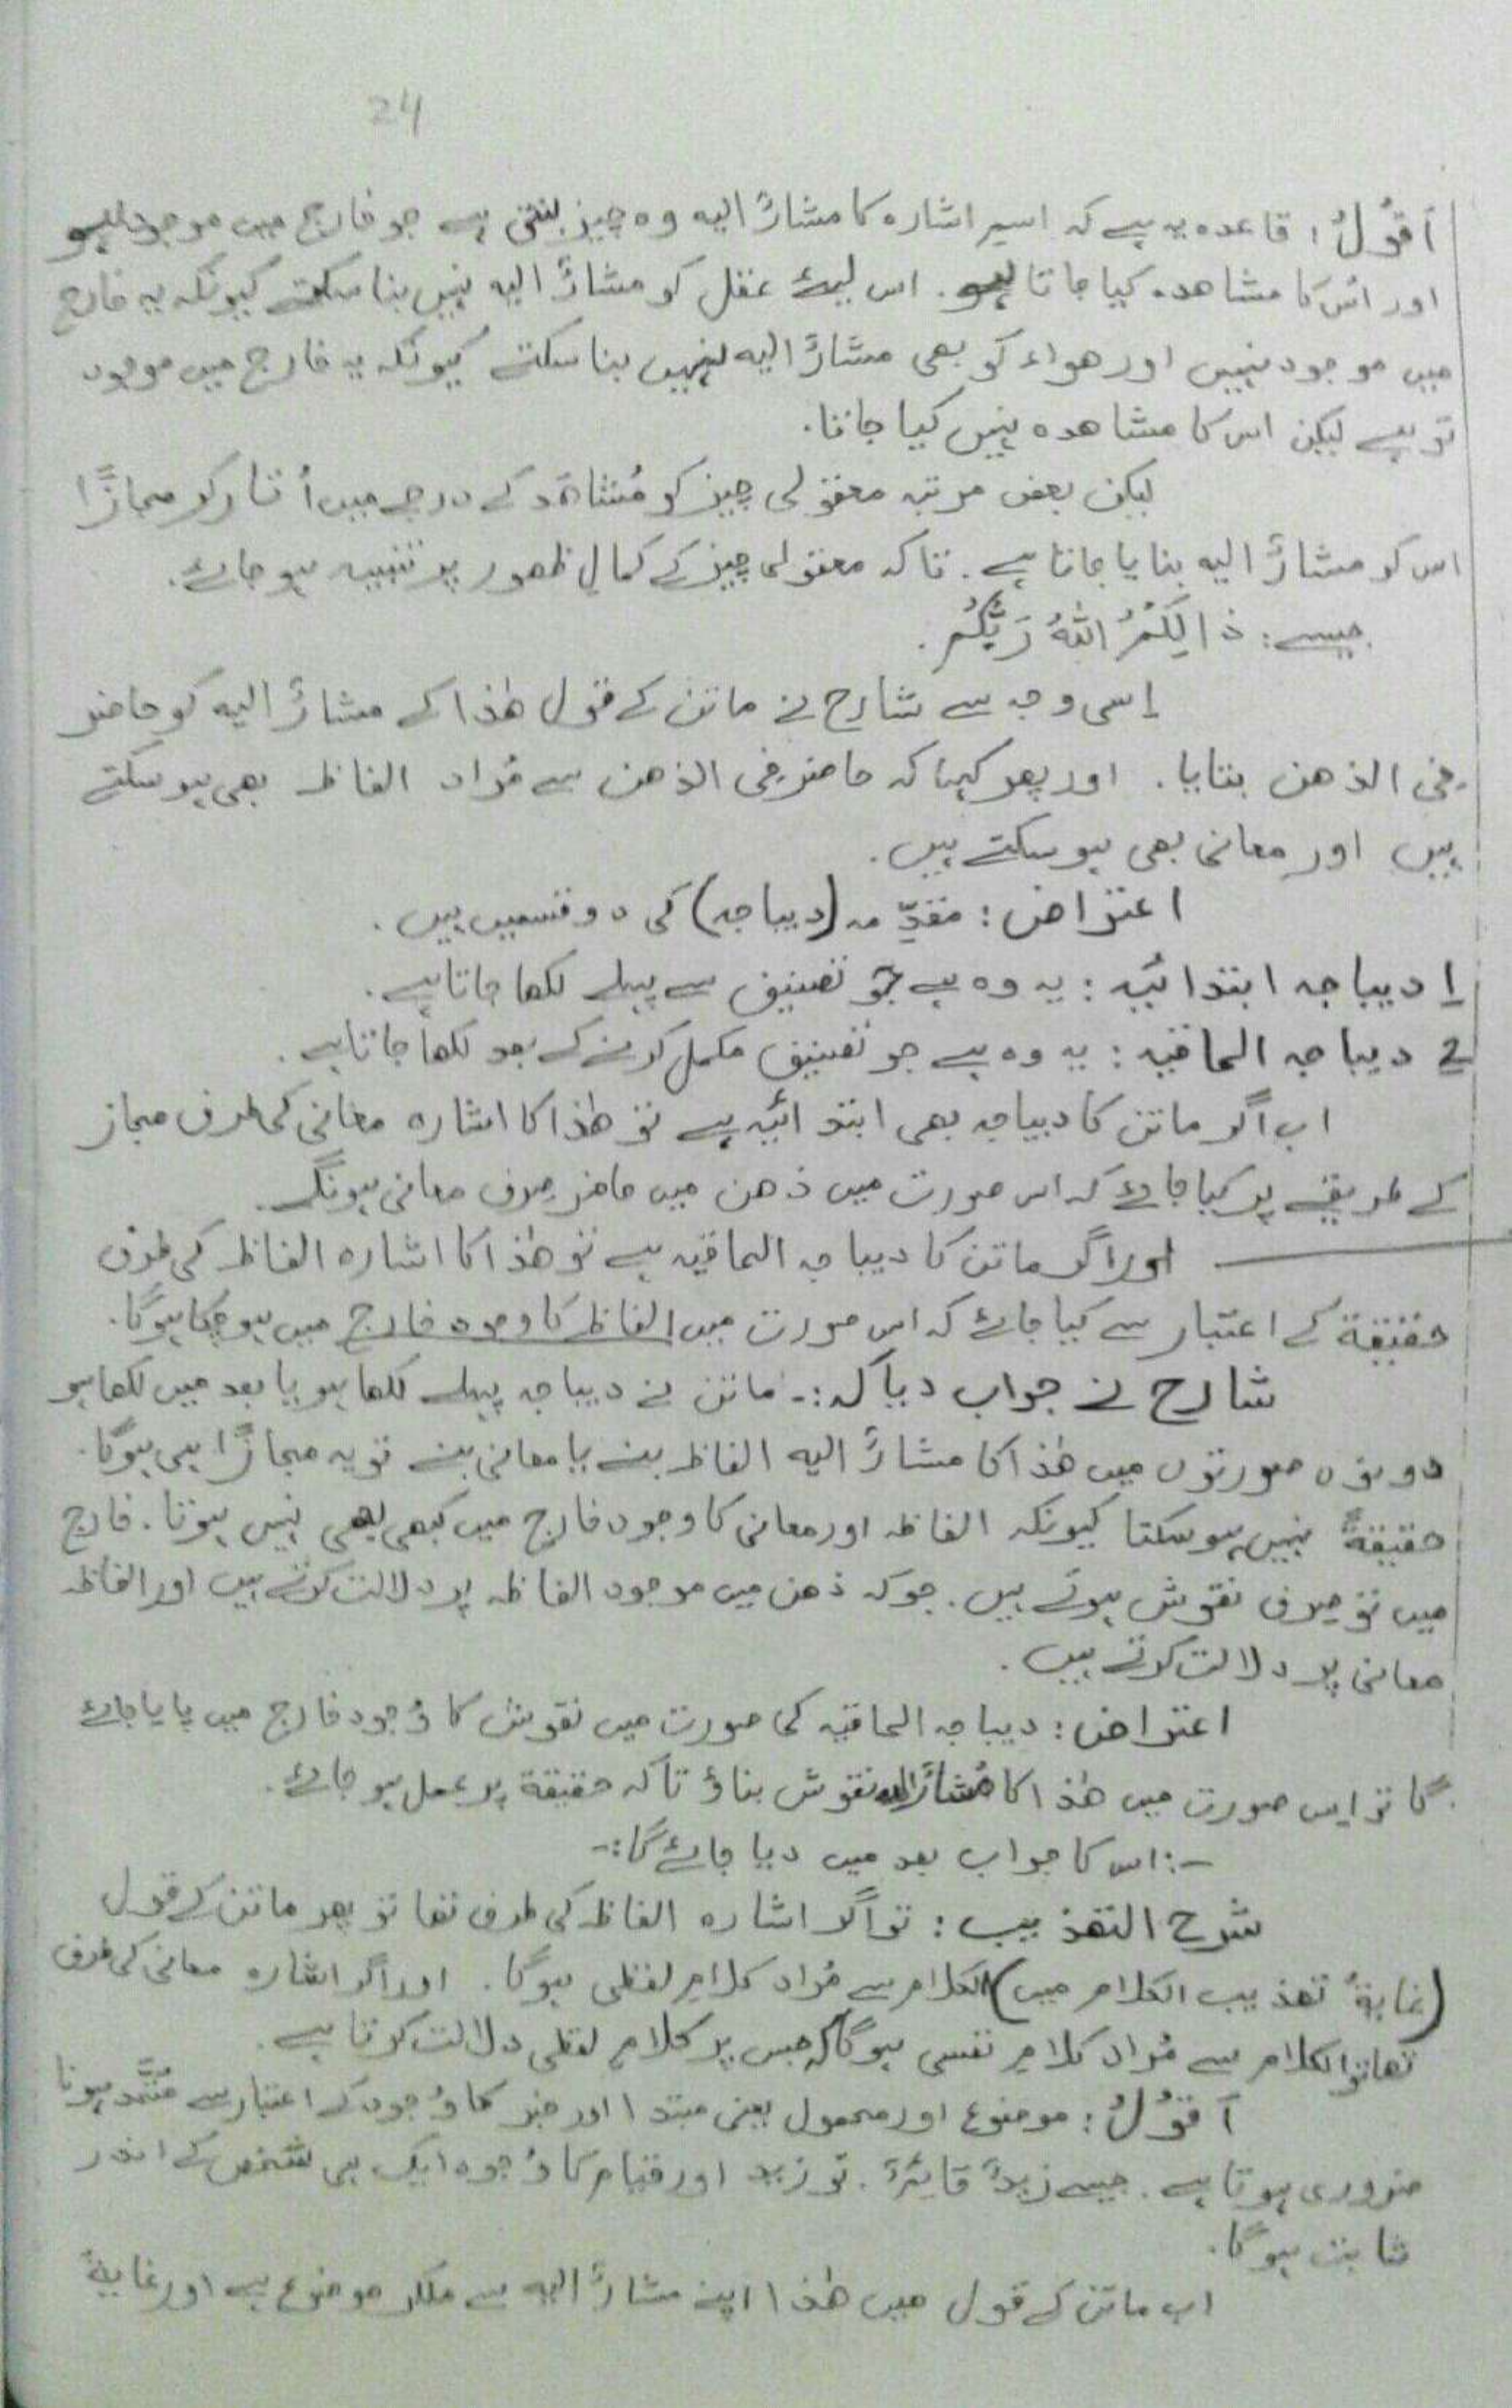 24
أقُوْلُ: قاعدہ یہ ہے کہ اسم اشارہ کا مشارٌ الیہ وہ چیز بنتی ہے جو خارج میں موجود ہو
اور اس کا مشاھدہ کیا جاتا ہو. اس لیئے عقل کو مشارٌ الیہ نہیں بنا سکتے کیونکہ یہ خارج
میں موجود نہیں اور ھواء کو بھی مشارٌ الیہ نہیں بنا سکتے کیونکہ یہ خارج میں موجود
تو ہے لیکن اس کا مشاھدہ نہیں کیا جاتا.
لیکن بعض مرتبہ معقولی چیز کو مُشاھَد کے درجے میں اُتار کر مجازًا
اس کو مشارٌ الیہ بنایا جاتا ہے. تاکہ معقولی چیز کے کمالِ ظھور پر تنبیہ ہو جائے.
جیسے: ذالِکُمُ اللّٰہُ رَبُّکُمْ.
اِسی وجہ سے شارح نے ماتن کے قول ھٰذا کے مشارٌ الیہ کو حاضر
فی الذھن بنایا. اور پھر کہا کہ حاضر فی الذھن سے مُراد الفاظ بھی ہو سکتے
ہیں اور معانی بھی ہو سکتے ہیں.
اعتراض: مقدِّمہ (دیباجہ) کی دو قسمیں ہیں.
١ دیباجہ ابتدائیہ: یہ وہ ہے جو تصنیف سے پہلے لکھا جاتا ہے.
٢ دیباجہ الحاقیہ: یہ وہ ہے جو تصنیف مکمل کرنے کے بعد لکھا جاتا ہے.
اب اگر ماتن کا دیباجہ بھی ابتدائیہ ہے تو ھٰذا کا اشارہ معانی کی طرف مجاز
کے طریقے پر کیا جائے کہ اس صورت میں ذھن میں حاضر صرف معانی ہونگے.
اور اگر ماتن کا دیباجہ الحاقیہ ہے تو ھٰذا کا اشارہ الفاظ کی طرف
حقیقۃ کے اعتبار سے کیا جائے کہ اس صورت میں الفاظ کا وجود خارج میں ہو چکا ہوگا.
شارح نے جواب دیا کہ :- ماتن نے دیباجہ پہلے لکھا ہو یا بعد میں لکھا ہو
دونوں صورتوں میں ھٰذا کا مشارٌ الیہ الفاظ بنے یا معانی بنے تو یہ مجازًا ہی ہوگا.
حقیقۃً نہیں ہو سکتا کیونکہ الفاظ اور معانی کا وجود خارج میں کبھی بھی نہیں ہوتا. خارج
میں تو صرف نقوش ہوتے ہیں. جو کہ ذھن میں موجود الفاظ پر دلالت کرتے ہیں اور الفاظ
معانی پر دلالت کرتے ہیں.
اعتراض: دیباجہ الحاقیہ کی صورت میں نقوش کا وُجود خارج میں پایا جائے
گا تو اس صورت میں ھٰذا کا مُشارٌ الیہ نقوش بناؤ تاکہ حقیقۃ پر عمل ہو جائے.
-: اس کا جواب بعد میں دیا جائے گا :-
شرح التھذیب: تو اگر اشارہ الفاظ کی طرف تھا تو پھر ماتن کے قول
(غایۃُ تھذیب الکلام میں) الکلام سے مُراد کلامِ لفظی ہوگا. اور اگر اشارہ معانی کی طرف
تھا تو الکلام سے مُراد کلامِ نفسی ہوگا کہ جس پر کلامِ لفظی دلالت کرتا ہے.
أقُوْلُ: موضوع اور محمول یعنی مبتدا اور خبر کا وُجود کے اعتبار سے متّحد ہونا
ضروری ہوتا ہے. جیسے زیدٌ قائمٌ. تو زید اور قیام کا وُجود ایک ہی شخص کے اندر
ثابت ہوگا.
اب ماتن کے قول میں ھٰذا اپنے مشارٌ الیہ سے ملکر موضوع ہے اور غایۃُ